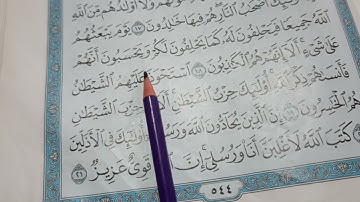 أَصْحَٰبُ ٱلنَّارِ هُمْ فِيهَا خَٰلِدُونَ ١٧ يَوْمَ يَبْعَثُهُمُ
ٱللَّهُ جَمِيعًا فَيَحْلِفُونَ لَهُۥ كَمَا يَحْلِفُونَ لَكُمْ وَيَحْسَبُونَ أَنَّهُمْ
عَلَىٰ شَىْءٍ أَلَآ إِنَّهُمْ هُمُ ٱلْكَٰذِبُونَ ١٨ ٱسْتَحْوَذَ عَلَيْهِمُ ٱلشَّيْطَٰنُ
فَأَنسَىٰهُمْ ذِكْرَ ٱللَّهِ أُو۟لَٰٓئِكَ حِزْبُ ٱلشَّيْطَٰنِ أَلَآ إِنَّ حِزْبَ ٱلشَّيْطَٰنِ
هُمُ ٱلْخَٰسِرُونَ ١٩ إِنَّ ٱلَّذِينَ يُحَآدُّونَ ٱللَّهَ وَرَسُولَهُۥٓ أُو۟لَٰٓئِكَ فِى ٱلْأَذَلِّينَ
كَتَبَ ٱللَّهُ لَأَغْلِبَنَّ أَنَا۠ وَرُسُلِىٓ إِنَّ ٱللَّهَ قَوِىٌّ عَزِيزٌ ٢١
٥٤٤